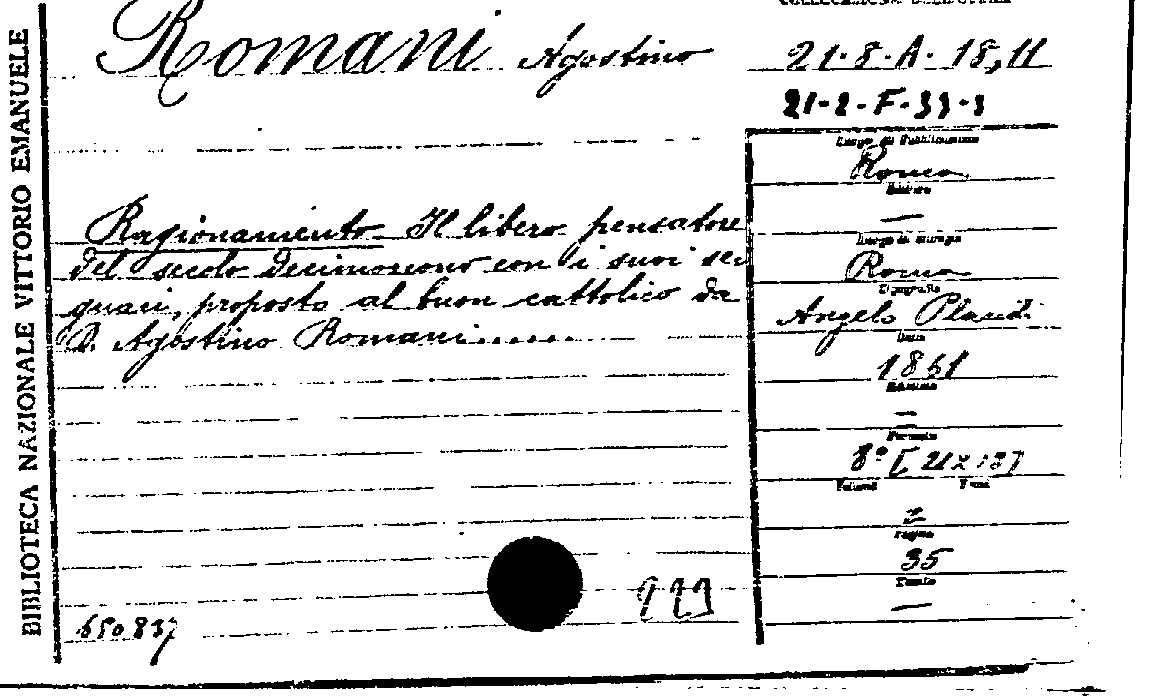 BIBLIOTECA NAZIONALE VITTORIO EMANUELE
Romani Agostino
21-8-A-18,11
21-2-F-33-3
Luogo di Pubblicazione
Roma
Editore
—
Luogo di stampa
Roma
Tipografia
Angelo Placidi
Data
1861
Edizione
—
Formato
8° [21x13]
Volumi Tomi
Pagine
35
Tavole
—
Ragionamento. Il libero pensatore
del secolo decimonono con i suoi se
guaci, proposto al buon cattolico da
D. Agostino Romani......
650837